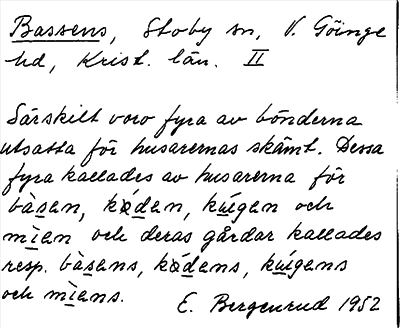 Bassens, Stoby sn, V. Göinge
hd, Krist. län. II
Särskilt voro fyra av bönderna
utsatta för husarernas skämt. Dessa
fyra kallades av husarerna för
bàsen, kǿden, kúigen och
mìen och deras gårdar kallades
resp. bàsens, kǿdens, kúigens
och mìens.
E. Bergenrud 1952